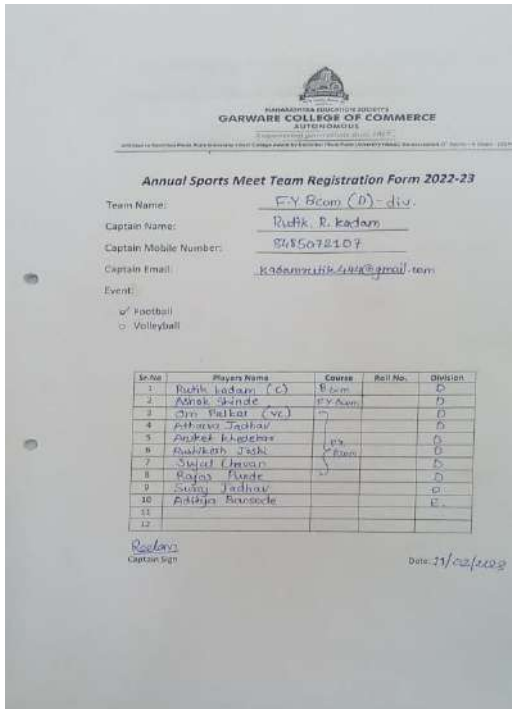 MAHARASHTRA EDUCATION SOCIETY'S
GARWARE COLLEGE OF COMMERCE
AUTONOMOUS
Annual Sports Meet Team Registration Form 2022-23
Team Name: F.Y. Bcom (D) - div.
Captain Name: Rutik. R. Kadam
Captain Mobile Number: 8485072107
Captain Email: kadamrutik444@gmail.com
Event:
Football
Volleyball
Sr.No Players Name Course Roll No. Division
1 Rutik kadam (C) Bcom D
2 Ashok Shinde FY Bcom D
3 Om Palkar (vc) D
4 Atharva Jadhav D
5 Aniket D
6 Rushikesh Joshi D
7 Sujal Chavan Bcom D
8 Rajas D
9 Jadhav D
10 Aditya Bansode E.
11
12
Captain Sign Date: 21/02/2023